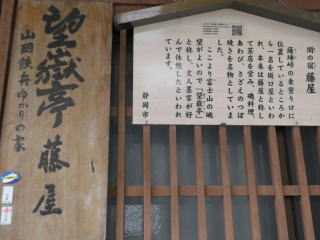 間の宿 藤屋
薩埵峠の東登り口に
位置しているところか
ら一名を坂口屋といわ
れ、本来は藤屋と称し
て茶店を営み、磯料理、
あわび、さざえのつぼ
焼きを名物としていま
した。
ここより富士山の眺
望がよいので「望嶽亭」
と称し、文人墨客が好
んで休憩したといわれ
ています。
静岡市
望嶽亭 藤屋
山岡鉄舟ゆかりの家